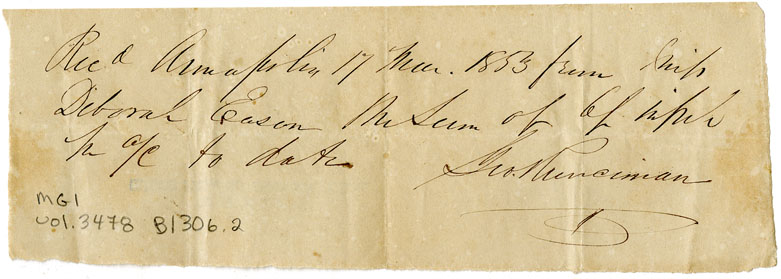 Rec'd Annapolis 17 Mar. 1853 from Miss
Deborah Eason the Sum of 6/
pr a/c to date Geo. Runciman
MG1
vol. 3478 B1306.2